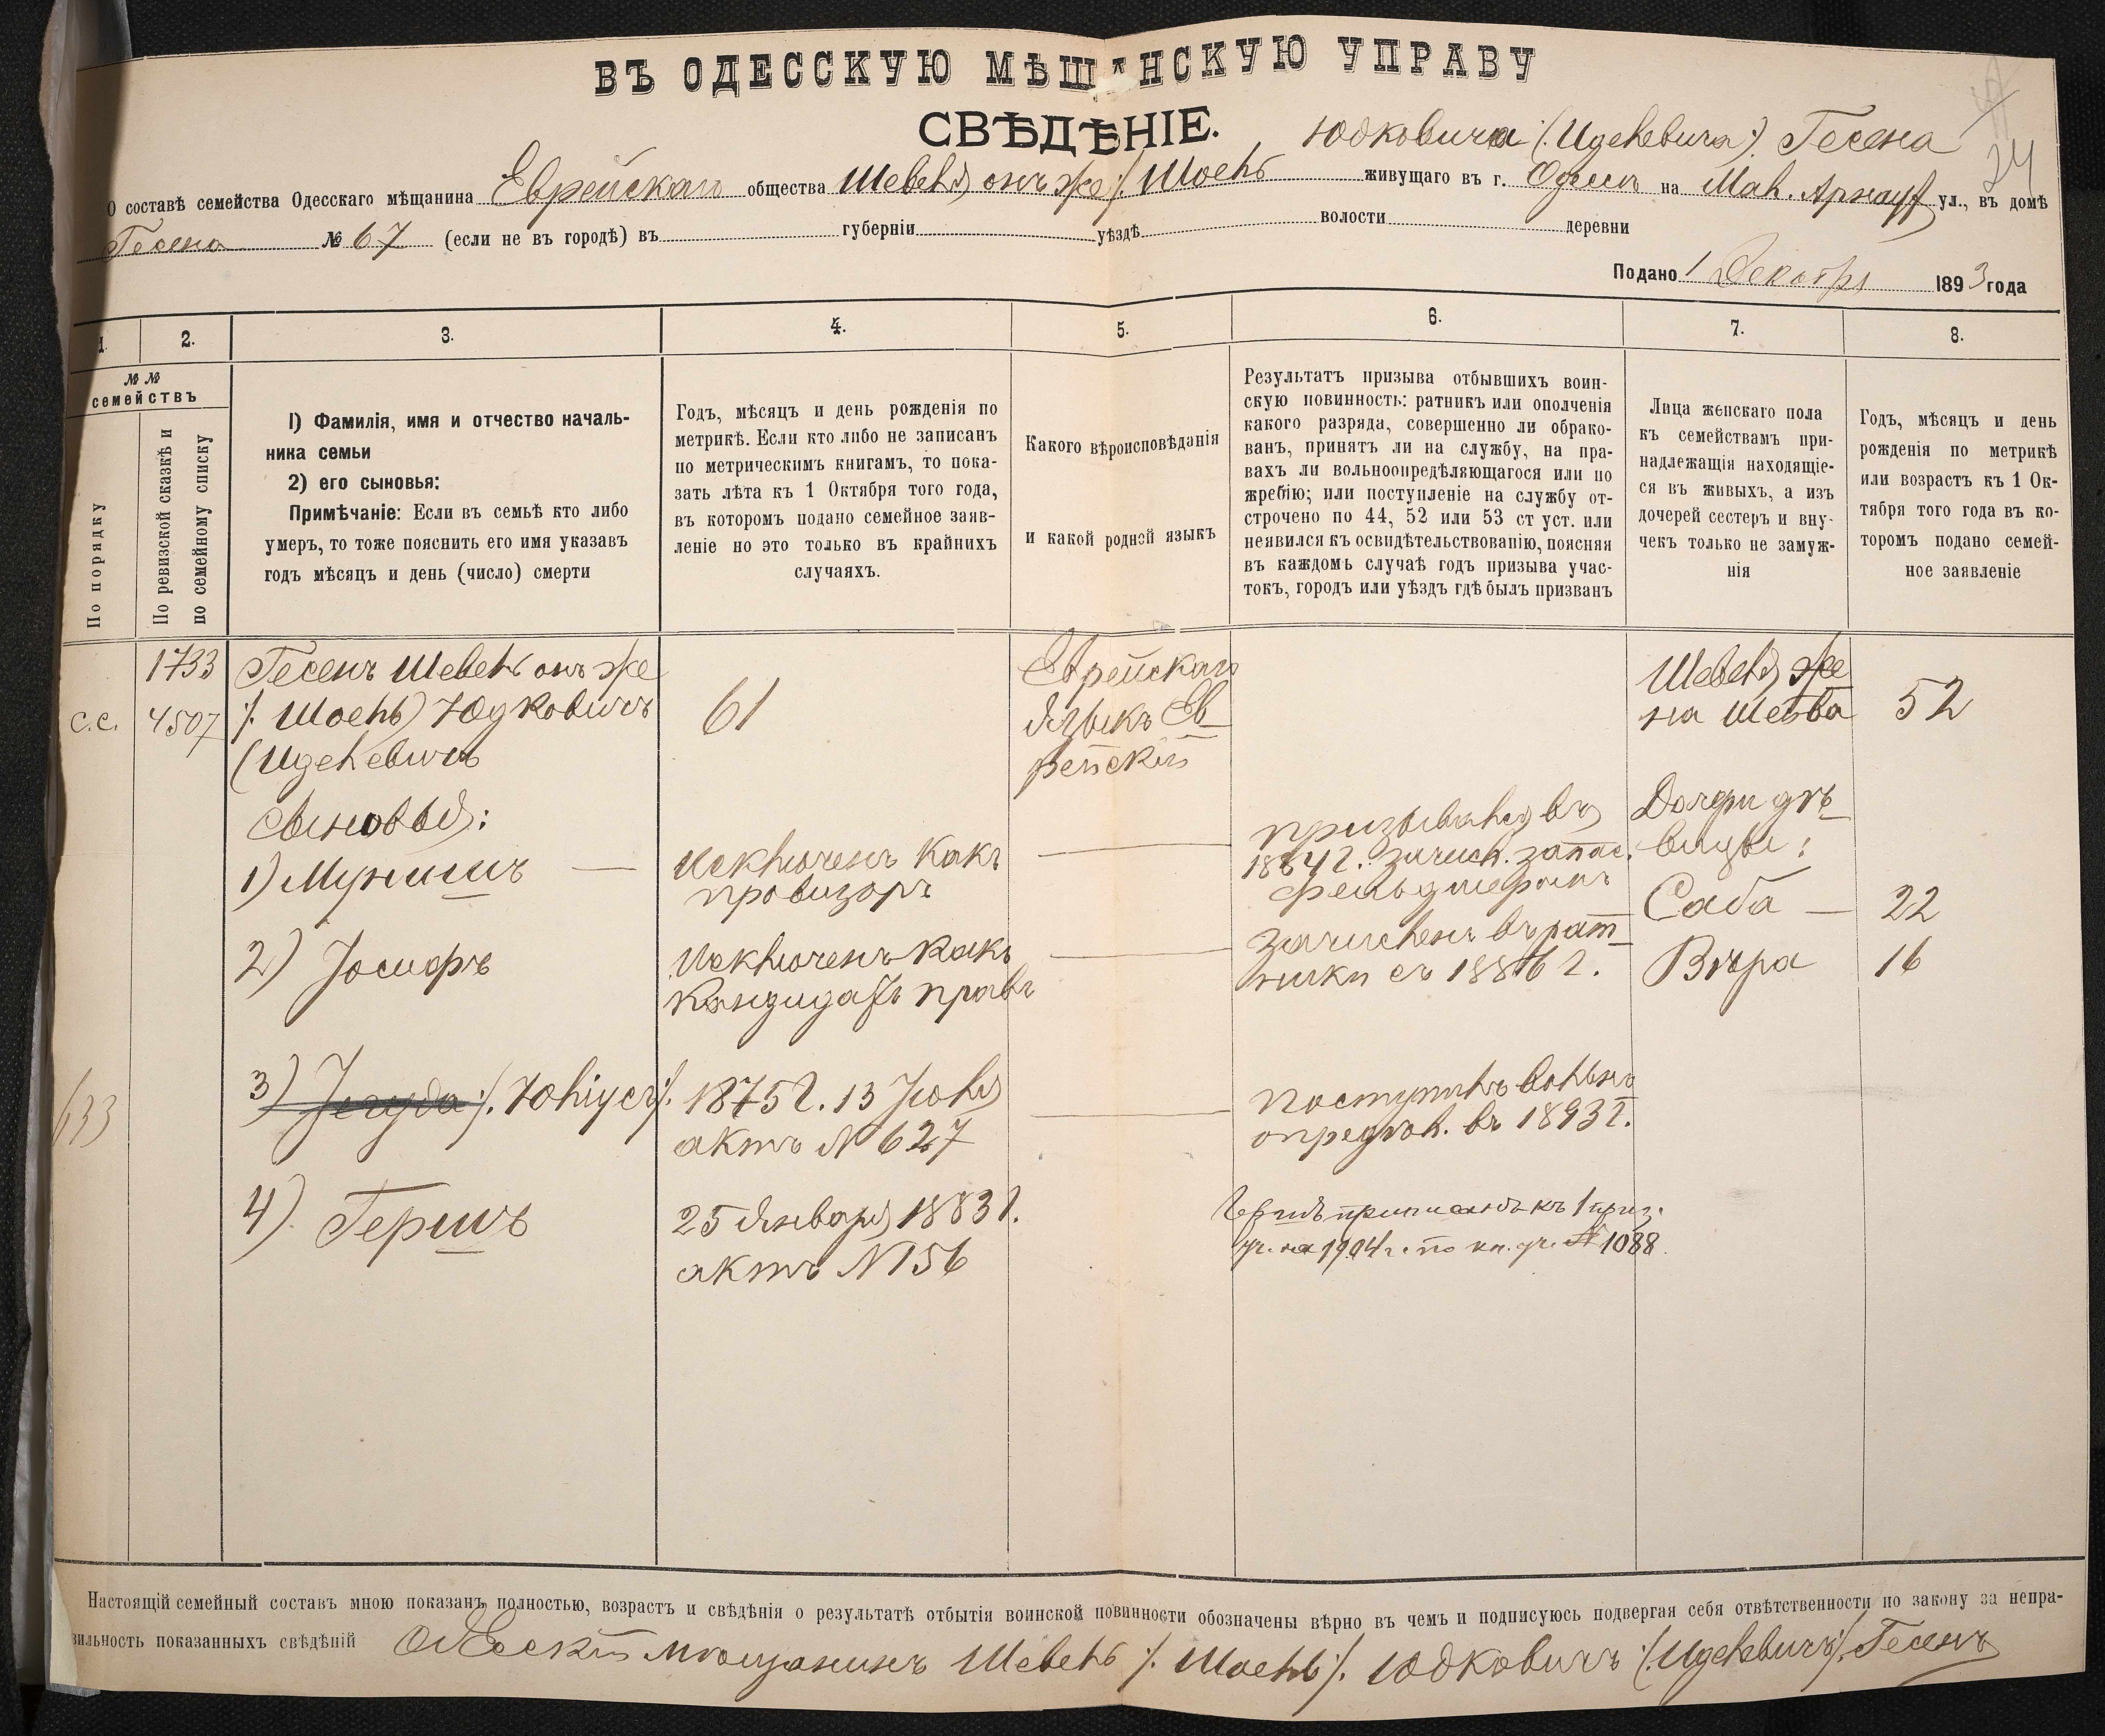 ВЪ ОДЕССКУЮ МѢЩАНСКУЮ УПРАВУ
СВѢДѢНІЕ.
Юдковича (Иделевича) Гесена
О составѣ семейства Одесскаго мѣщанина Еврейскаго общества Шевеля онъ же /. Шоель живущаго въ г. Одессѣ на Мал. Арнаут ул., въ домѣ
Гесена № 67 (если не въ городѣ) въ губерніи уѣздѣ волости деревни
Подано 1 Декабря 1893 года
1. 2. 3. 4. 5. 6. 7. 8.
№№ семействъ
По порядку
По ревизской сказкѣ и
по семейному списку
1) Фамилія, имя и отчество началь-
ника семьи
2) его сыновья:
Примѣчаніе: Если въ семьѣ кто либо
умеръ, то тоже пояснить его имя указавъ
годъ мѣсяцъ и день (число) смерти
Годъ, мѣсяцъ и день рожденія по
метрикѣ. Если кто либо не записанъ
по метрическимъ книгамъ, то пока-
зать лѣта къ 1 Октября того года,
въ которомъ подано семейное заяв-
леніе но это только въ крайнихъ
случаяхъ.
Какого вѣроисповѣданія
и какой родной языкъ
Результатъ призыва отбывшихъ воин-
скую повинность: ратникъ или ополченія
какого разряда, совершенно ли обрако-
ванъ, принятъ ли на службу, на пра-
вахъ ли вольноопредѣляющагося или по
жребію; или поступленіе на службу от-
строчено по 44, 52 или 53 ст уст. или
неявился къ освидѣтельствованію, поясняя
въ каждомъ случаѣ годъ призыва учас-
токъ, городъ или уѣздъ гдѣ былъ призванъ
Лица женскаго пола
къ семействамъ при-
надлежащія находящіе-
ся въ живыхъ, а изъ
дочерей сестеръ и вну-
чекъ только не замуж-
нія
Годъ, мѣсяцъ и день
рожденія по метрикѣ
или возрастъ къ 1 Ок-
тября того года въ ко-
торомъ подано семей-
ное заявленіе
1733
с.с. 4507
Гесенъ Шевель онъ же
/. Шоель) Юдковичъ
(Иделевичъ
61
Еврейскаго
языкъ Ев-
рейскій
Шевеля же
на Шейва
52
Сыновья:
1) Мунишъ —
Исключенъ какъ
провизоръ
призывался въ
1884 г. зачисл. запас.
фельдшеромъ
Дочери дѣ-
вицы:
Саба — 22
2) Іосифъ
Исключенъ какъ
Кандидатъ правъ
зачисленъ въ рат-
ники съ 1886 г.
Вѣра 16
633
3) Іегуда /. Юліусъ/.
1875 г. 13 Іюля
актъ № 627
поступилъ вольно
опредѣл. въ 1893 г.
4) Гершъ
25 Января 1883 г.
актъ № 156
Гершъ приписанъ къ 1 приз.
уч. на 1904 г. по кн. уч. № 1088
Настоящій семейный составъ мною показанъ полностью, возрастъ и свѣдѣнія о результатѣ отбытія воинской повинности обозначены вѣрно въ чемъ и подписуюсь подвергая себя отвѣтственности по закону за непра-
вильность показанныхъ свѣдѣній Одесскій мѣщанинъ Шевель /. Шоель /. Юдковичъ (Иделевичъ) Гесенъ